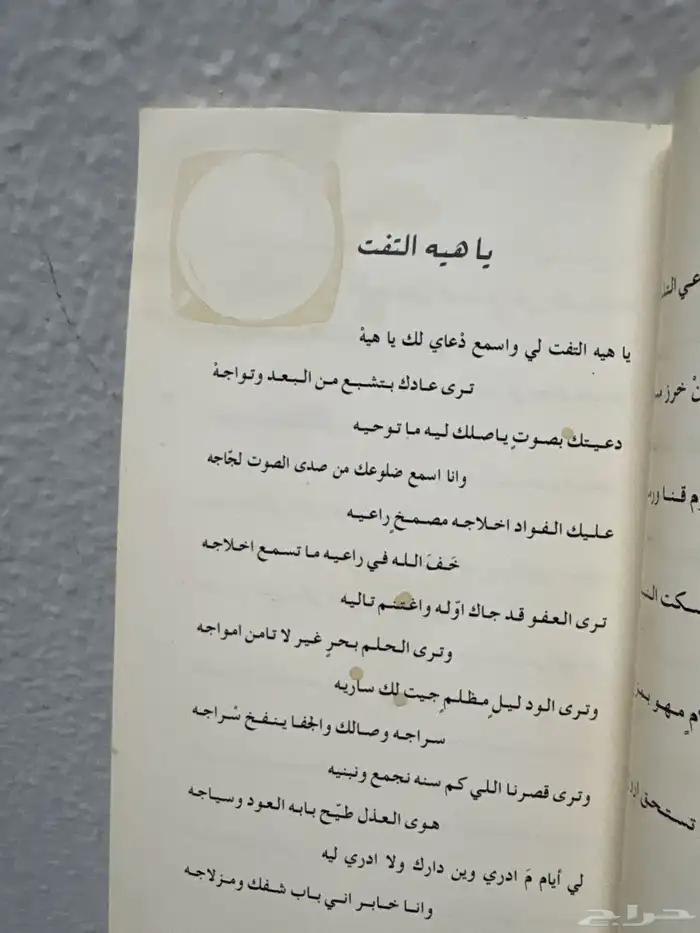 يا هيه التفت
يا هيه التفت لي واسمع دْعاي لك يا هيهْ
ترى عادك بتشبع من البعد وتواجهْ
دعيتك بصوتٍ ياصلك ليه ما توحيه
وانا اسمع ضلوعك من صدى الصوت لجّاجه
عليك الفواد اخلاجه مصمخٍ راعيه
خَفَ الله في راعيه ما تسمع اخلاجه
ترى العفو قد جاك اوّله واغتنم تاليه
وترى الحلم بحرٍ غير لا تامن امواجه
وترى الود ليلٍ مظلمٍ جيت لك ساريه
سراجه وصالك والجفا ينفخ سْراجه
وترى قصرنا اللي كم سنه نجمع ونبنيه
هوى العذل طيّح بابه العود وسياجه
لي أيام مَ ادري وين دارك ولا ادري ليه
وانا خابر اني باب شفك ومزلاجه
خرز
حراج